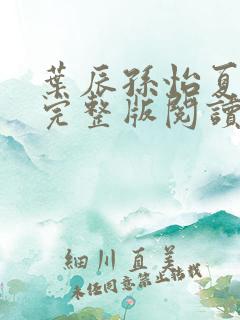 葉辰孫怡夏
完整版閱讀
細川直美
未經同意禁止轉載